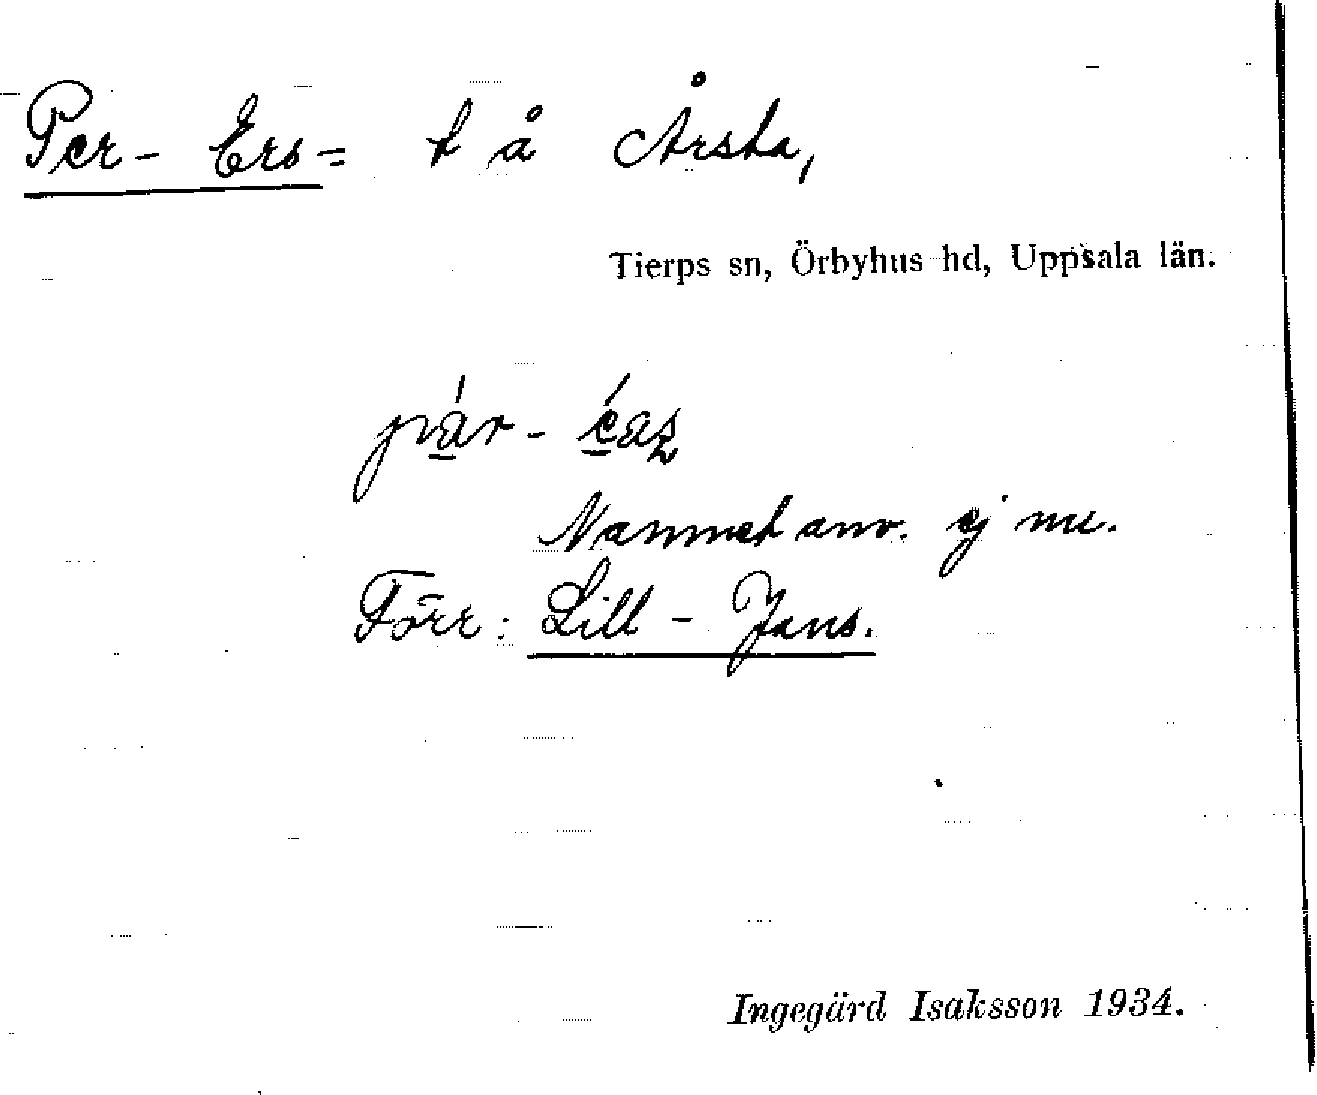 Per-Ers= t å Årsta,
Tierps sn, Örbyhus hd, Uppsala län.
Namnet anv. ej nu.
Förr: Lill-Jans.
Ingegärd Isaksson 1934.